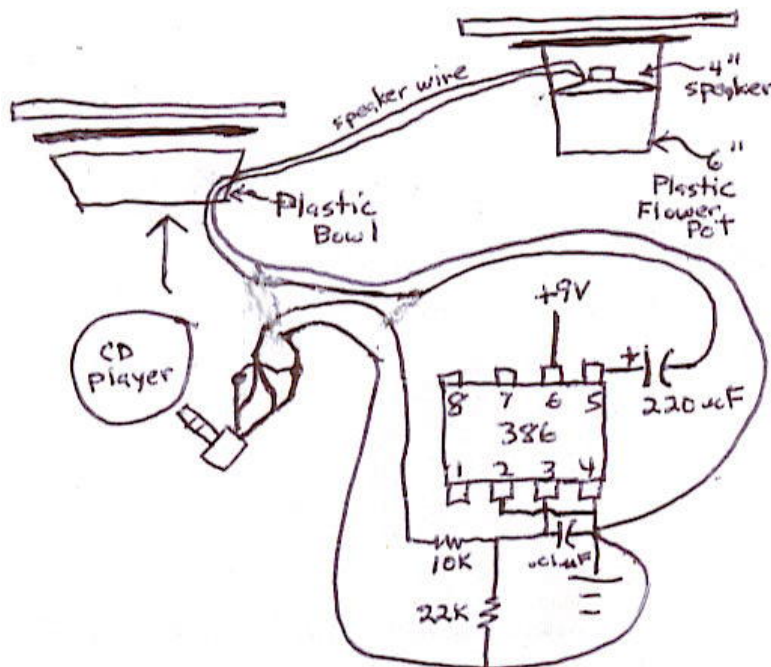 speaker wire
4"
speaker
6"
Plastic
Flower
Pot
Plastic
Bowl
CD
player
+9V
8 7 6 5
+
220uF
386
1 2 3 4
10K
.01uF
22K